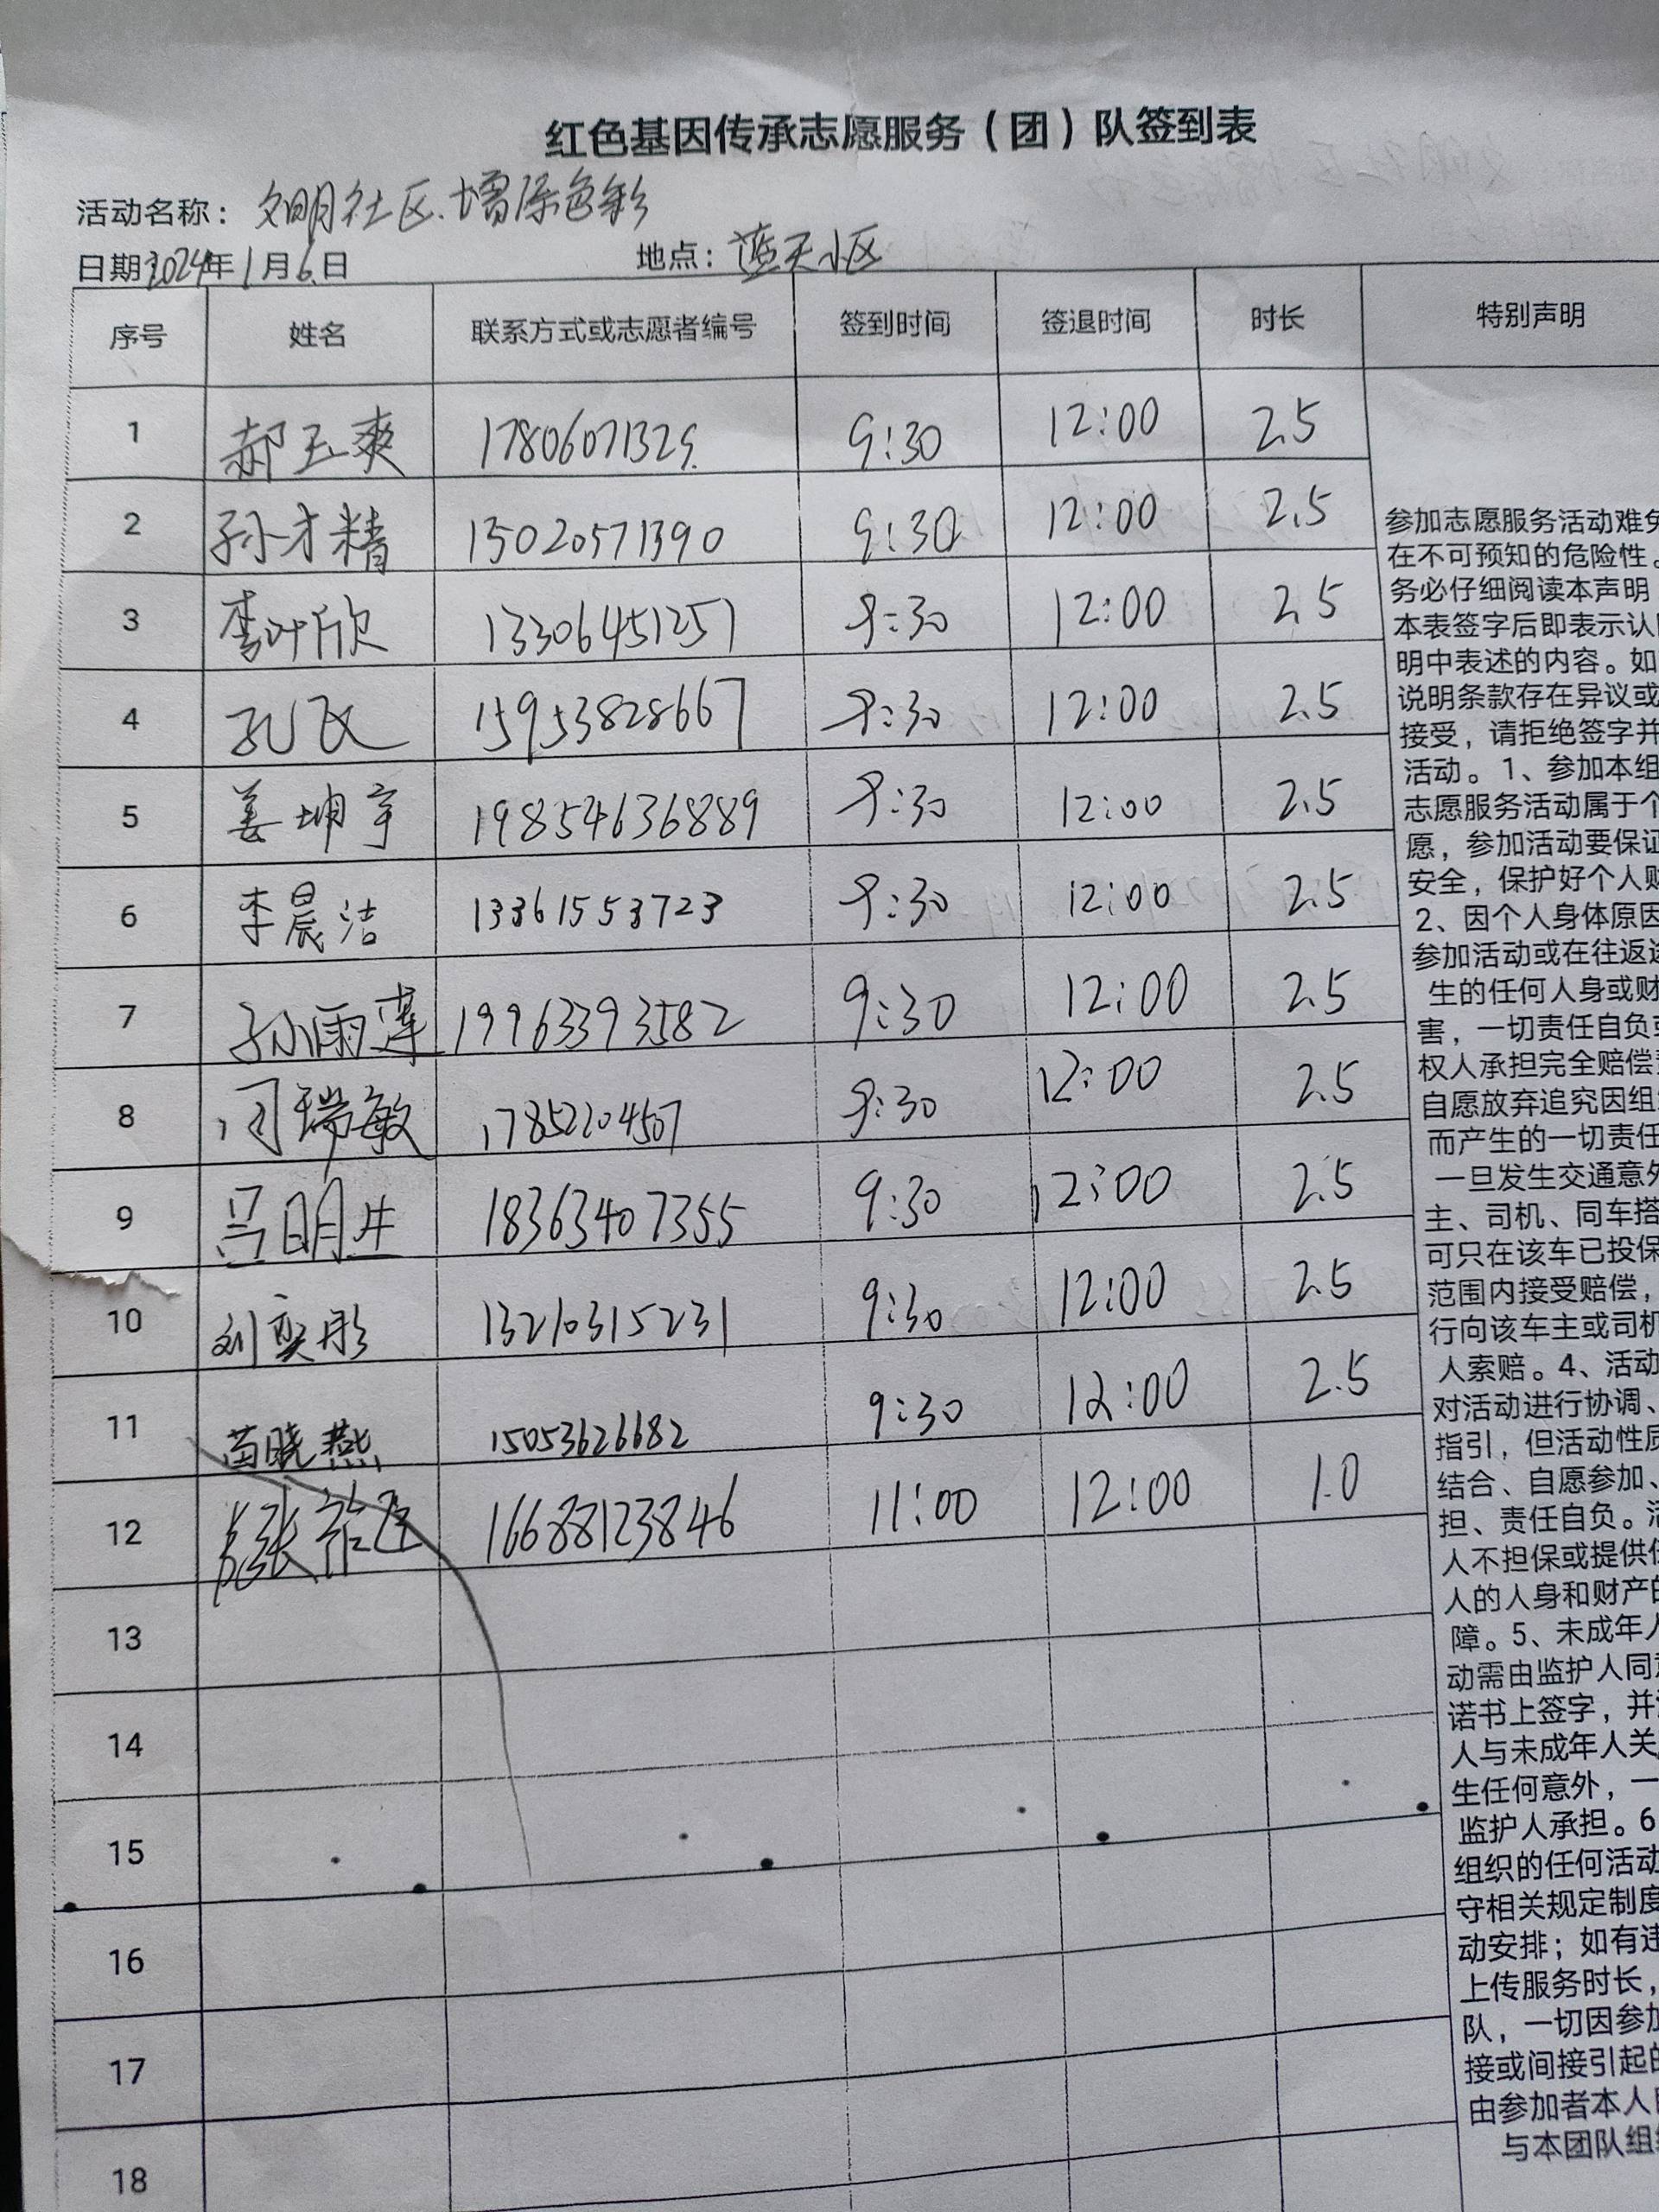 红色基因传承志愿服务（团）队签到表
活动名称：文明社区.增添色彩
日期2024年1月6日 地点：蓝天小区
序号 姓名 联系方式或志愿者编号 签到时间 签退时间 时长 特别声明
1 郝玉爽 17806071329 9:30 12:00 2.5
2 孙才精 15020571390 9:30 12:00 2.5
3 李叶欣 13306451257 9:30 12:00 2.5
4 孔飞 15953828667 9:30 12:00 2.5
5 姜坤宇 19854636889 9:30 12:00 2.5
6 李晨洁 13361553723 9:30 12:00 2.5
7 孙雨莲 19963393582 9:30 12:00 2.5
8 闫瑞敏 17852204507 9:30 12:00 2.5
9 吕明生 18363407355 9:30 12:00 2.5
10 刘奕彤 13210315231 9:30 12:00 2.5
11 苗晓燕 15053626682 9:30 12:00 2.5
12 张 16688123846 11:00 12:00 1.0
13
14
15
16
17
18
参加志愿服务活动难免
在不可预知的危险性。
务必仔细阅读本声明
本表签字后即表示认
明中表述的内容。如
说明条款存在异议或
接受，请拒绝签字并
活动。1、参加本组
志愿服务活动属于个
愿，参加活动要保证
安全，保护好个人财
2、因个人身体原因
参加活动或在往返途
生的任何人身或财
害，一切责任自负或
权人承担完全赔偿责
自愿放弃追究因组织
而产生的一切责任
一旦发生交通意外
主、司机、同车搭
可只在该车已投保
范围内接受赔偿，
行向该车主或司机
人索赔。4、活动
对活动进行协调、
指引，但活动性质
结合、自愿参加、
担、责任自负。活
人不担保或提供任
人的人身和财产的
障。5、未成年人
动需由监护人同意
诺书上签字，并
人与未成年人关
生任何意外，一
监护人承担。6
组织的任何活动
守相关规定制度
动安排；如有违
上传服务时长，
队，一切因参加
接或间接引起的
由参加者本人自
与本团队组织